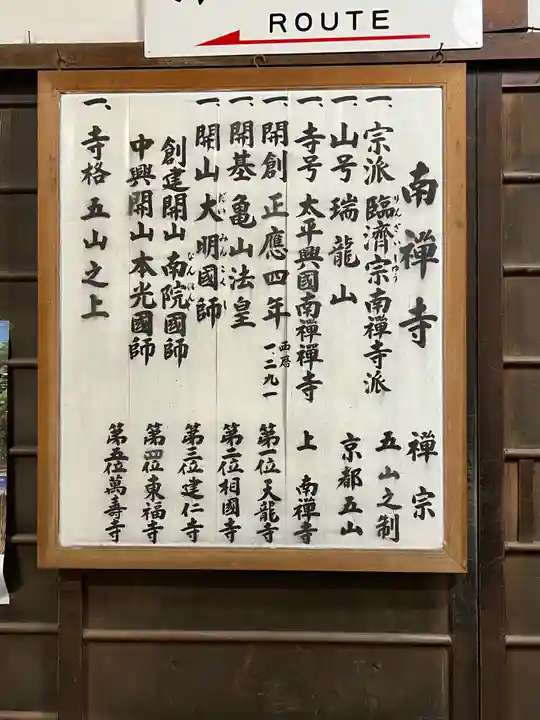 ROUTE
南禪寺
一、宗派臨濟宗南禪寺派
りんざいしゅう
一、山号瑞龍山
一、寺号太平興國南禪禪寺
一、開創正應四年
西暦一、二九一
一、開基亀山法皇
一、開山大明國師
だいみんこくし
創建開山南院國師
なんいん
中興開山本光國師
一、寺格五山之上
禪宗
五山之制
京都五山
上 南禪寺
第一位天龍寺
第二位相國寺
第三位建仁寺
第四位東福寺
第五位萬壽寺